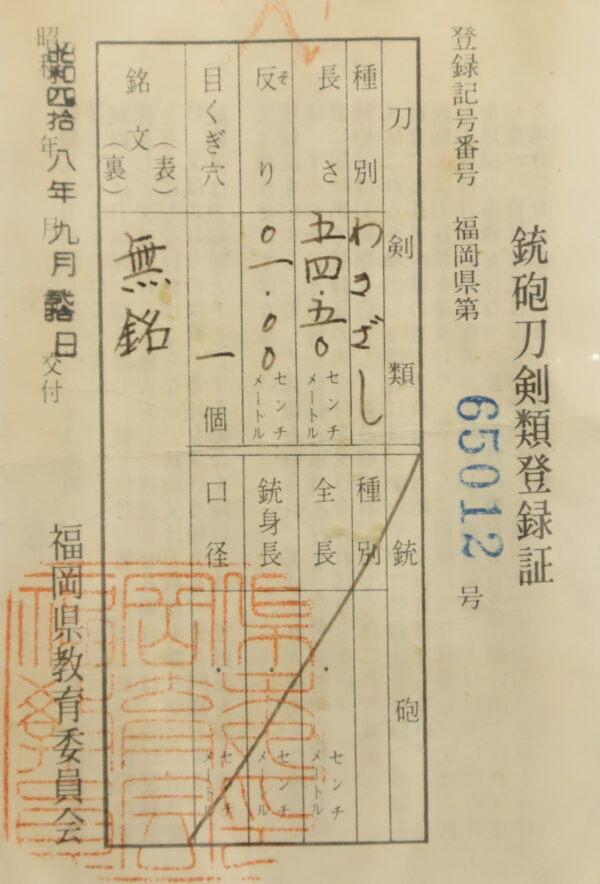 銃砲刀剣類登録証
登録記号番号 福岡県第 65012 号
刀剣類
種別 わきざし
長さ 五四.五〇 センチメートル
反り 〇一.〇〇 センチメートル
目くぎ穴 一 個
銘文 (表) (裏) 無銘
銃砲
種別
全長 . センチメートル
銃身長 . センチメートル
口径 . センチメートル
昭和四拾八年九月 日 交付
福岡県教育委員会